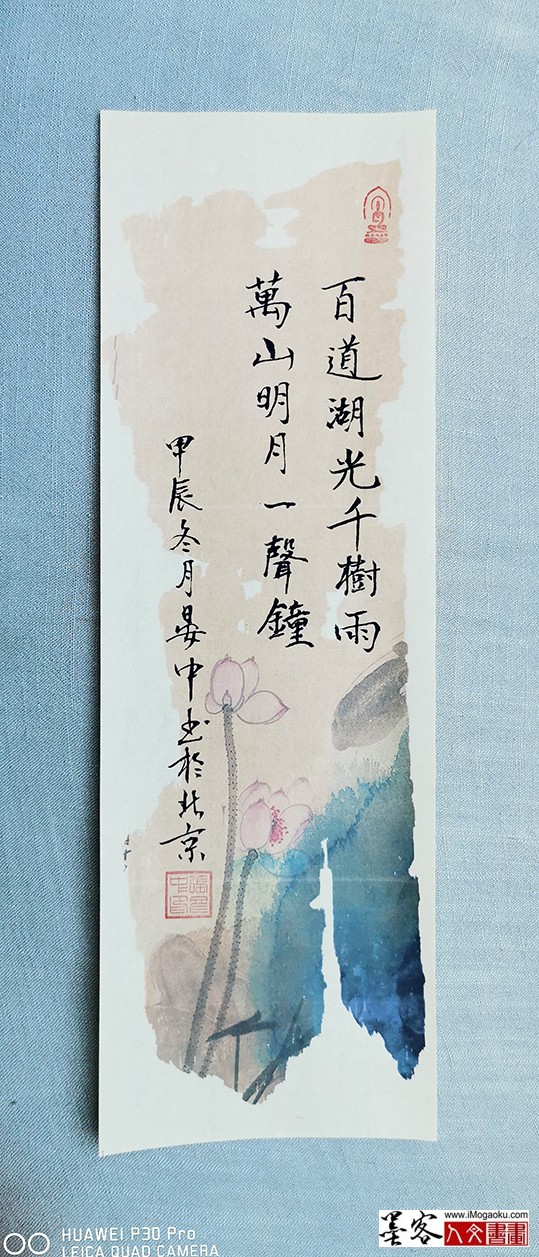 百道湖光千樹雨
萬山明月一聲鐘
甲辰冬月晏中书於北京
HUAWEI P30 Pro
LEICA QUAD CAMERA
www.iMogaoku.com
墨客
人文書畫